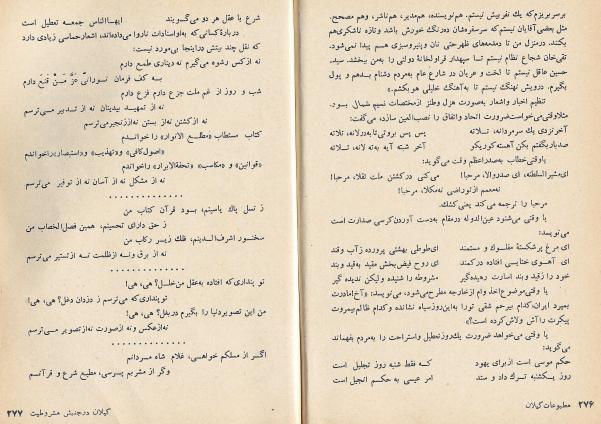 برسر بریزم که یك نفر بیش نیستم. هم نویسنده، هم مدیر، هم ناشر، وهم مصحح.
مثل بعضی آقایان نیستم که سرسفره‌شان ده رنگ خورش باشد وتازه ناشکری هم
بکنند. درمنزل من تا دمدمه‌های ظهر حتی نان وپنیروسبزی هم پیدا نمی‌شود.
تقی خان شجاع نظام نیستم تا سپهدار قراولخانهٔ دولتی را به من ببخشد. سید
حسین عاقل نیستم تا لخت و عریان در شارع عام به مردم دشنام بدهم و پول
بگیرم. درویش نهنگ نیستم تا به آهنگ خلیلی هوبکشم.»
تنظیم اخبار واشعار به صورت هزل وطنز ازمختصات نسیم شمال بود.
مثلا وقتی می‌خواست ضرورت اتحاد واتفاق را نصب‌العین سازد، می‌گفت:
آخر نزدی یك سر مردانه، تلاته پس پس برونی تا به در لانه، تلاته
صد بار بگفتم بکن آهسته کوریکو آخر شبه آیه به ته لانه، تلاته
یا وقتی خطاب به صدراعظم وقت می‌گوید:
ای مشیرالسلطنه، ای صدر والا، مرحبا! می‌کنی در کشتن ملت تقلا، مرحبا!
نه معمم از تو راضی نه مکلا، مرحبا!
مرحبا را ترجمه می‌کند یعنی کشك.
یا وقتی می‌شنود عین‌الدوله درمقام به دست آوردن کرسی صدارت است
می‌نویسد:
ای مرغ پرشکستهٔ مفلوك و مستمند ای طوطی بهشتی پرورده زآب وقند
ای آهوی ختایی افتاده در کمند ای روح فیض بخش مقید به قید وبند
خود را زقید وبند اسارت رهیده گیر مشروطه را شنیده ولیکن ندیده گیر
یا وقتی موضوع اخذ وام ازخارجه مطرح می‌شود، می‌نویسد: «آخ امادرت
بمیرد ایران، کدام بیرحم شقی تورا به این روز سیاه نشانده وکدام ظالم بیمروت
پیکرت را آش ولاش کرده است؟»
یا وقتی می‌خواهد ضرورت یك روز تعطیل واستراحت را به مردم بفهماند
می‌گوید:
حکم موسی است از برای یهود که فقط شنبه روز تجلیل است
روز یکشنبه ترك داد و ستد امر عیسی به حکم انجیل است
۲۷۶ مطبوعات گیلان
شرع با عقل هر دو می‌گویند ایها الناس جمعه تعطیل است
دربارهٔ کسانی که به او اسنادات ناروا می‌داده‌اند، اشعار حماسی زیادی دارد
که نقل چند بیتش دراینجا بی‌مورد نیست:
نه از کس رشوه می‌گیرم نه دیناری طمع دارم
به کف فرمان نورانی عَزَّ مَنْ قَنَعَ دارم
شب و روز از غم ملت جزع دارم فزع دارم
نه از تمهید بیدینان نه از تدبیر می‌ترسم
نه ازکشتن نه از بستن نه اززنجیر می‌ترسم
کتاب مستطاب «مطلع الانوار» را خواندم
«اصول کافی» و «تهذیب» و «استبصار» را خواندم
«قوانین» و «مکاسب» «تحفة‌الابرار» را خواندم
نه از مشکل نه از آسان نه از توفیر می‌ترسم
. . . . . . . . . . . . .
ز نسل پاك یاسینم، بود قرآن کتاب من
ز حق دارای تحمینم، همین فصل‌الخطاب من
سخنور اشرف‌الدینم، فلك زیر رکاب من
نه از برق ونه ازظلمت نه از تستیر می‌ترسم
. . . . . . . . . . . . .
تو پنداری که افتاده به عقل من خلل؟ هی، هی!
تو پنداری که می‌ترسم ز دزدان دغل؟ هی، هی!
من این تصویر دنیا را بگیرم در بغل؟ هی، هی!
نه از عکس و نه از صورت نه از تصویر می‌ترسم
. . . . . . . . . . . . .
اگر از مسلکم خواهی، غلام شاه مردانم
وگر از مشربم پرسی، مطیع شرع و قرآنم
گیلان در جنبش مشروطیت ۲۷۷